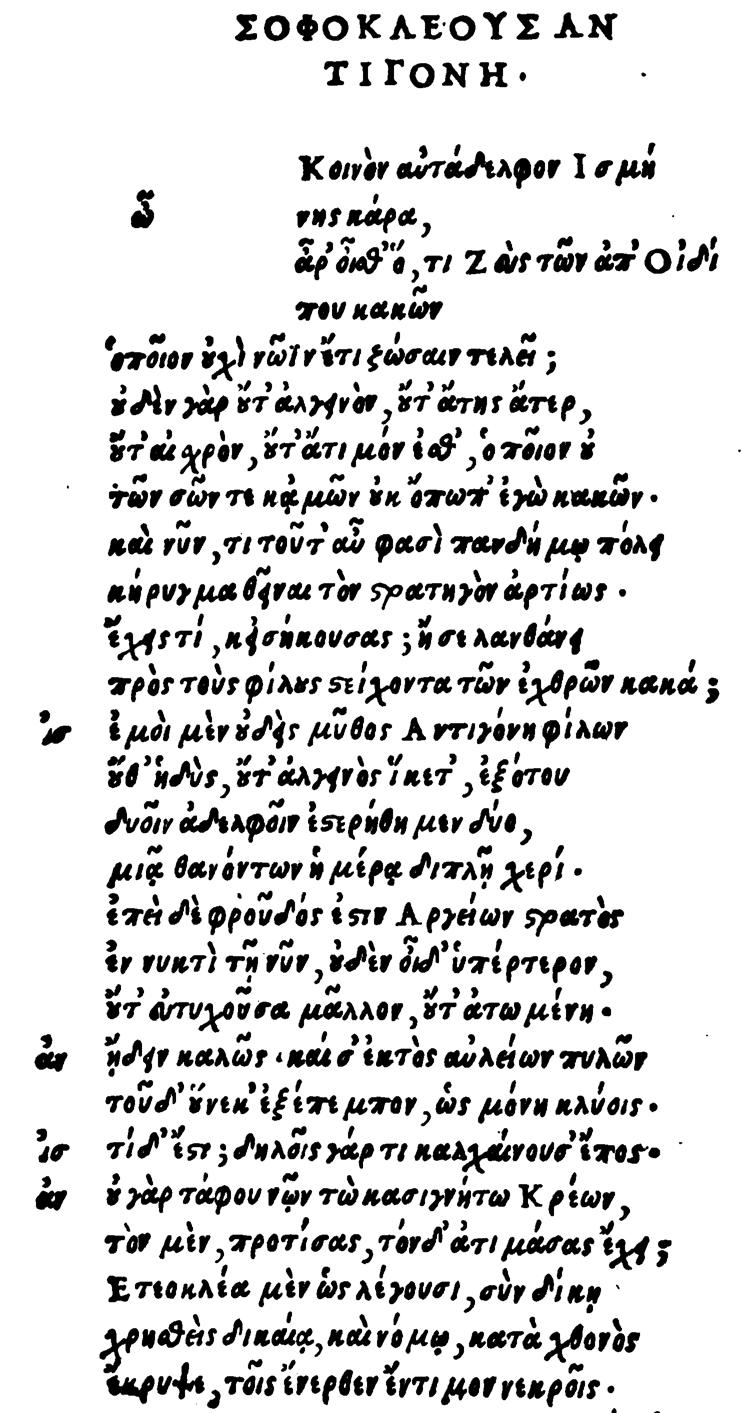 ΣΟΦΟΚΛΕΟΥΣ ΑΝ
ΤΙΓΟΝΗ.
Κοινὸν αὐτάδελφον Ισμή
ὦ νης κάρα,
ἆρ' οἶσθ' ὅ, τι Ζεὺς τῶν ἀπ' Οἰδί
που κακῶν
ὁποῖον οὐχὶ νῶϊν ἔτι ζώσαιν τελεῖ;
οὐδὲν γὰρ οὔτ' ἀλγεινὸν, οὔτ' ἄτης ἄτερ,
οὔτ' αἰσχρὸν, οὔτ' ἄτιμόν ἐσθ', ὁποῖον οὐ
τῶν σῶν τε κᾀμῶν οὐκ ὄπωπ' ἐγὼ κακῶν.
καὶ νῦν, τι τοῦτ' αὖ φασὶ πανδήμῳ πόλει
κήρυγμα θεῖναι τὸν στρατηγὸν ἀρτίως.
ἔχεις τί, κεἰσήκουσας; ἤ σε λανθάνει
πρὸς τοὺς φίλους στείχοντα τῶν ἐχθρῶν κακά;
ἰσ ἐμοὶ μὲν οὐδεὶς μῦθος Αντιγόνη φίλων
οὔθ' ἡδὺς, οὔτ' ἀλγεινὸς ἵκετ', ἐξότου
δυοῖν ἀδελφοῖν ἐστερήθημεν δύο,
μιᾷ θανόντων ἡμέρᾳ διπλῇ χερί.
ἐπεὶ δὲ φροῦδός ἐστιν Αργείων στρατὸς
ἐν νυκτὶ τῇ νῦν, οὐδὲν οἶδ' ὑπέρτερον,
οὔτ' εὐτυχοῦσα μᾶλλον, οὔτ' ἀτωμένη.
ἀν ᾔδειν καλῶς. καί σ' ἐκτὸς αὐλείων πυλῶν
τοῦδ' οὕνεκ' ἐξέπεμπον, ὡς μόνη κλύοις.
ἰσ τί δ' ἔστι; δηλοῖς γάρ τι καλχαίνουσ' ἔπος.
ἀν οὐ γὰρ τάφου νῷν τὼ κασιγνήτω Κρέων,
τὸν μὲν, προτίσας, τόνδ' ἀτιμάσας ἔχει;
Ετεοκλέα μὲν ὡς λέγουσι, σὺν δίκῃ
χρησθεὶς δικαίᾳ, καὶ νόμῳ, κατὰ χθονὸς
ἔκρυψε, τοῖς ἔνερθεν ἔντιμον νεκροῖς.